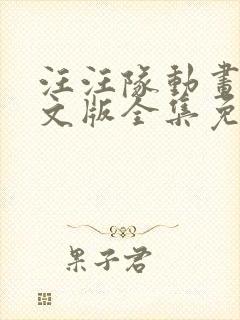 汪汪隊動畫
文版全集免
果子君